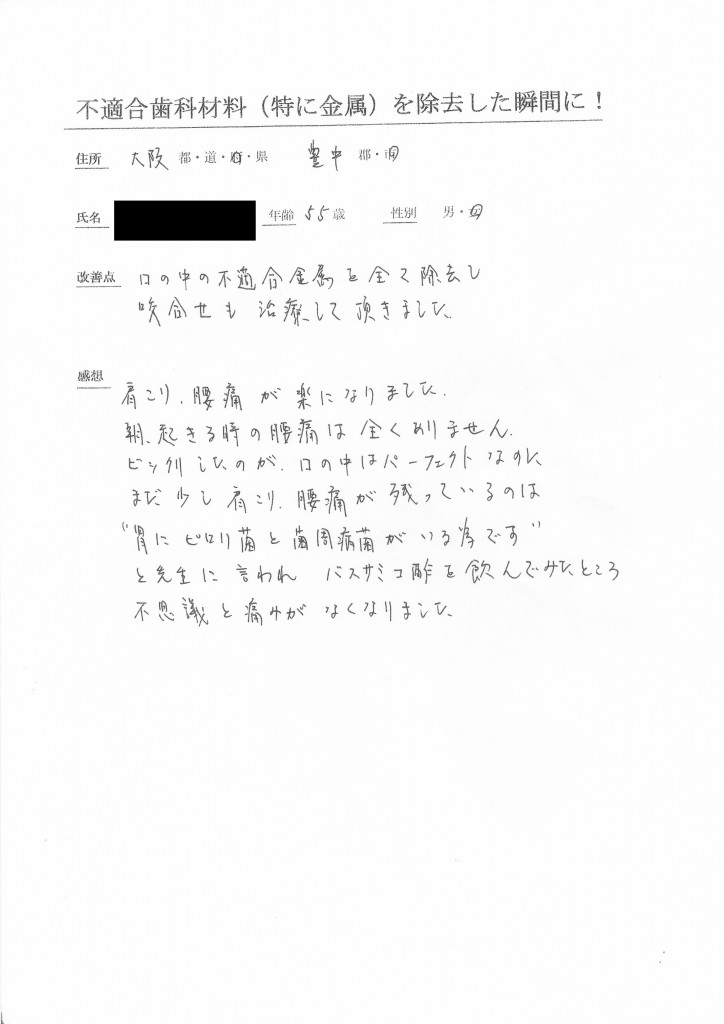 不適合歯科材料（特に金属）を除去した瞬間に！
住所 大阪 都・道・府・県 豊中 郡・市
氏名 年齢 55歳 性別 男・女
改善点 口の中の不適合金属を全て除去し
咬合せも治療して頂きました。
感想
肩こり、腰痛が楽になりました。
朝、起きる時の腰痛は全くありません。
ビックリしたのが、口の中はパーフェクトなのに
まだ少し肩こり、腰痛が残っているのは
"胃にピロリ菌と歯周病菌がいる為です"
と先生に言われ バスサミコ酢を飲んでみたところ
不思議と痛みがなくなりました。